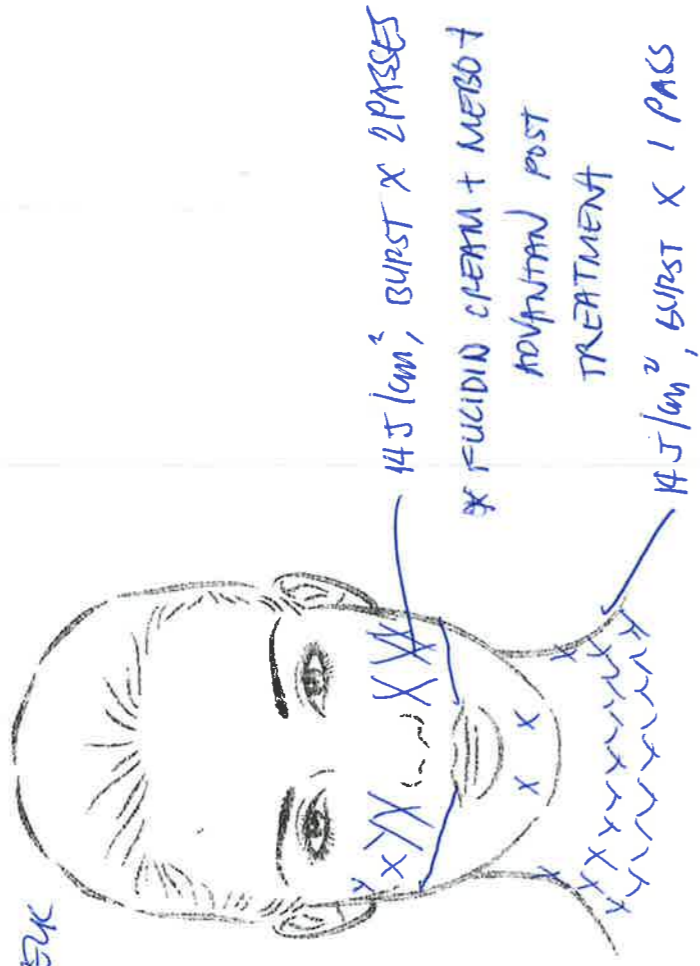 14 J/cm², BURST X 2 PASSES
* FUCIDIN CREAM + MEBO +
ADVANTAN POST
TREATMENT
14 J/cm², BURST X 1 PASS